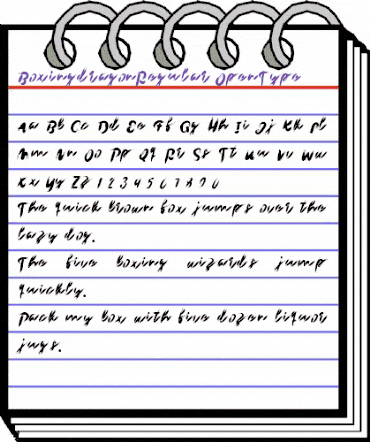 BoxingdragonRegular OpenType
Aa Bb Cc Dd Ee Ff Gg Hh Ii Jj Kk Ll
Mm Nn Oo Pp Qq Rr Ss Tt Uu Vv Ww
Xx Yy Zz 1 2 3 4 5 6 7 8 9 0
The quick brown fox jumps over the
lazy dog.
The five boxing wizards jump
quickly.
Pack my box with five dozen liquor
jugs.